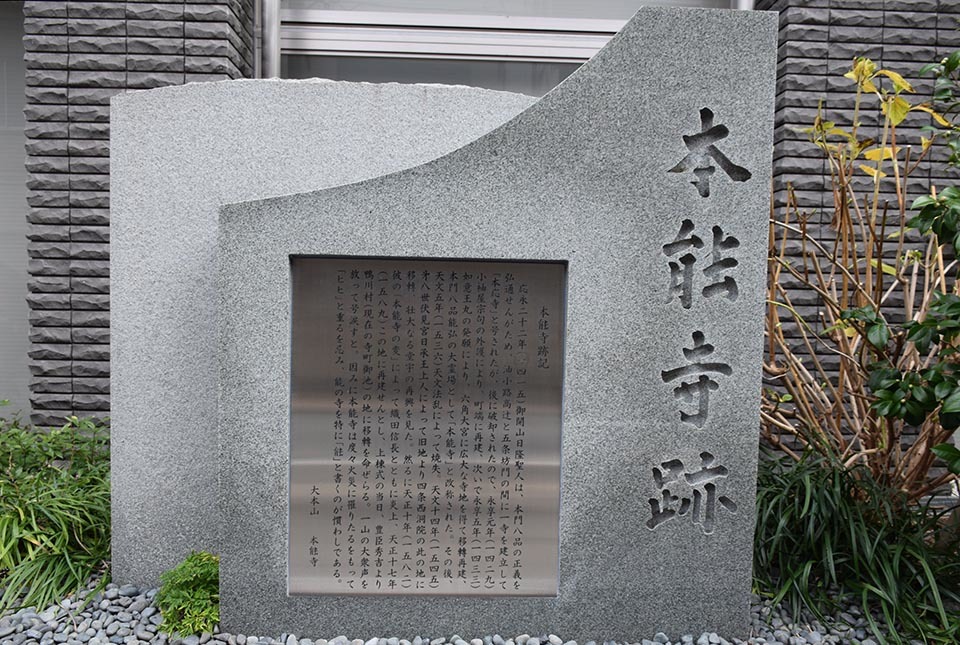 本能寺跡
本能寺跡記
応永二十二年(一四一五)御開山日隆聖人は、本門八品の正義を
弘通せんがため、油小路高辻と五条坊門の間に一寺を建立して
「本応寺」と号されたが、後に破却されたので、永享元年(一四二九)
小袖屋宗句の外護により、町端に再建、次いで永享五年(一四三三)
如意王丸の発願により、六角大宮に広大な寺地を得て移転再建、
本門八品能弘の大霊場として「本能寺」と改称された。その後、
天文五年(一五三六)天文法乱によって焼失、天文十四年(一五四五)
第八世伏見宮日承王上人によって旧地より四条西洞院の此の地に
移転、壮大なる堂宇の再興を見た。然るに天正十年(一五八二)
彼の「本能寺の変」によって織田信長とともに炎上、天正十七年
(一五八九)この地に再建せんとし、上棟式の当日、豊臣秀吉より
鴨川村(現在の寺町御池)の地に移転を命ぜらる。一山の大衆声を
放って号涙すと。因みに本能寺は度々火災に罹りたるをもって
「ヒヒ」と重るを忌み、能の寺を特に「䏻」と書くのが慣わしである。
大本山 本能寺